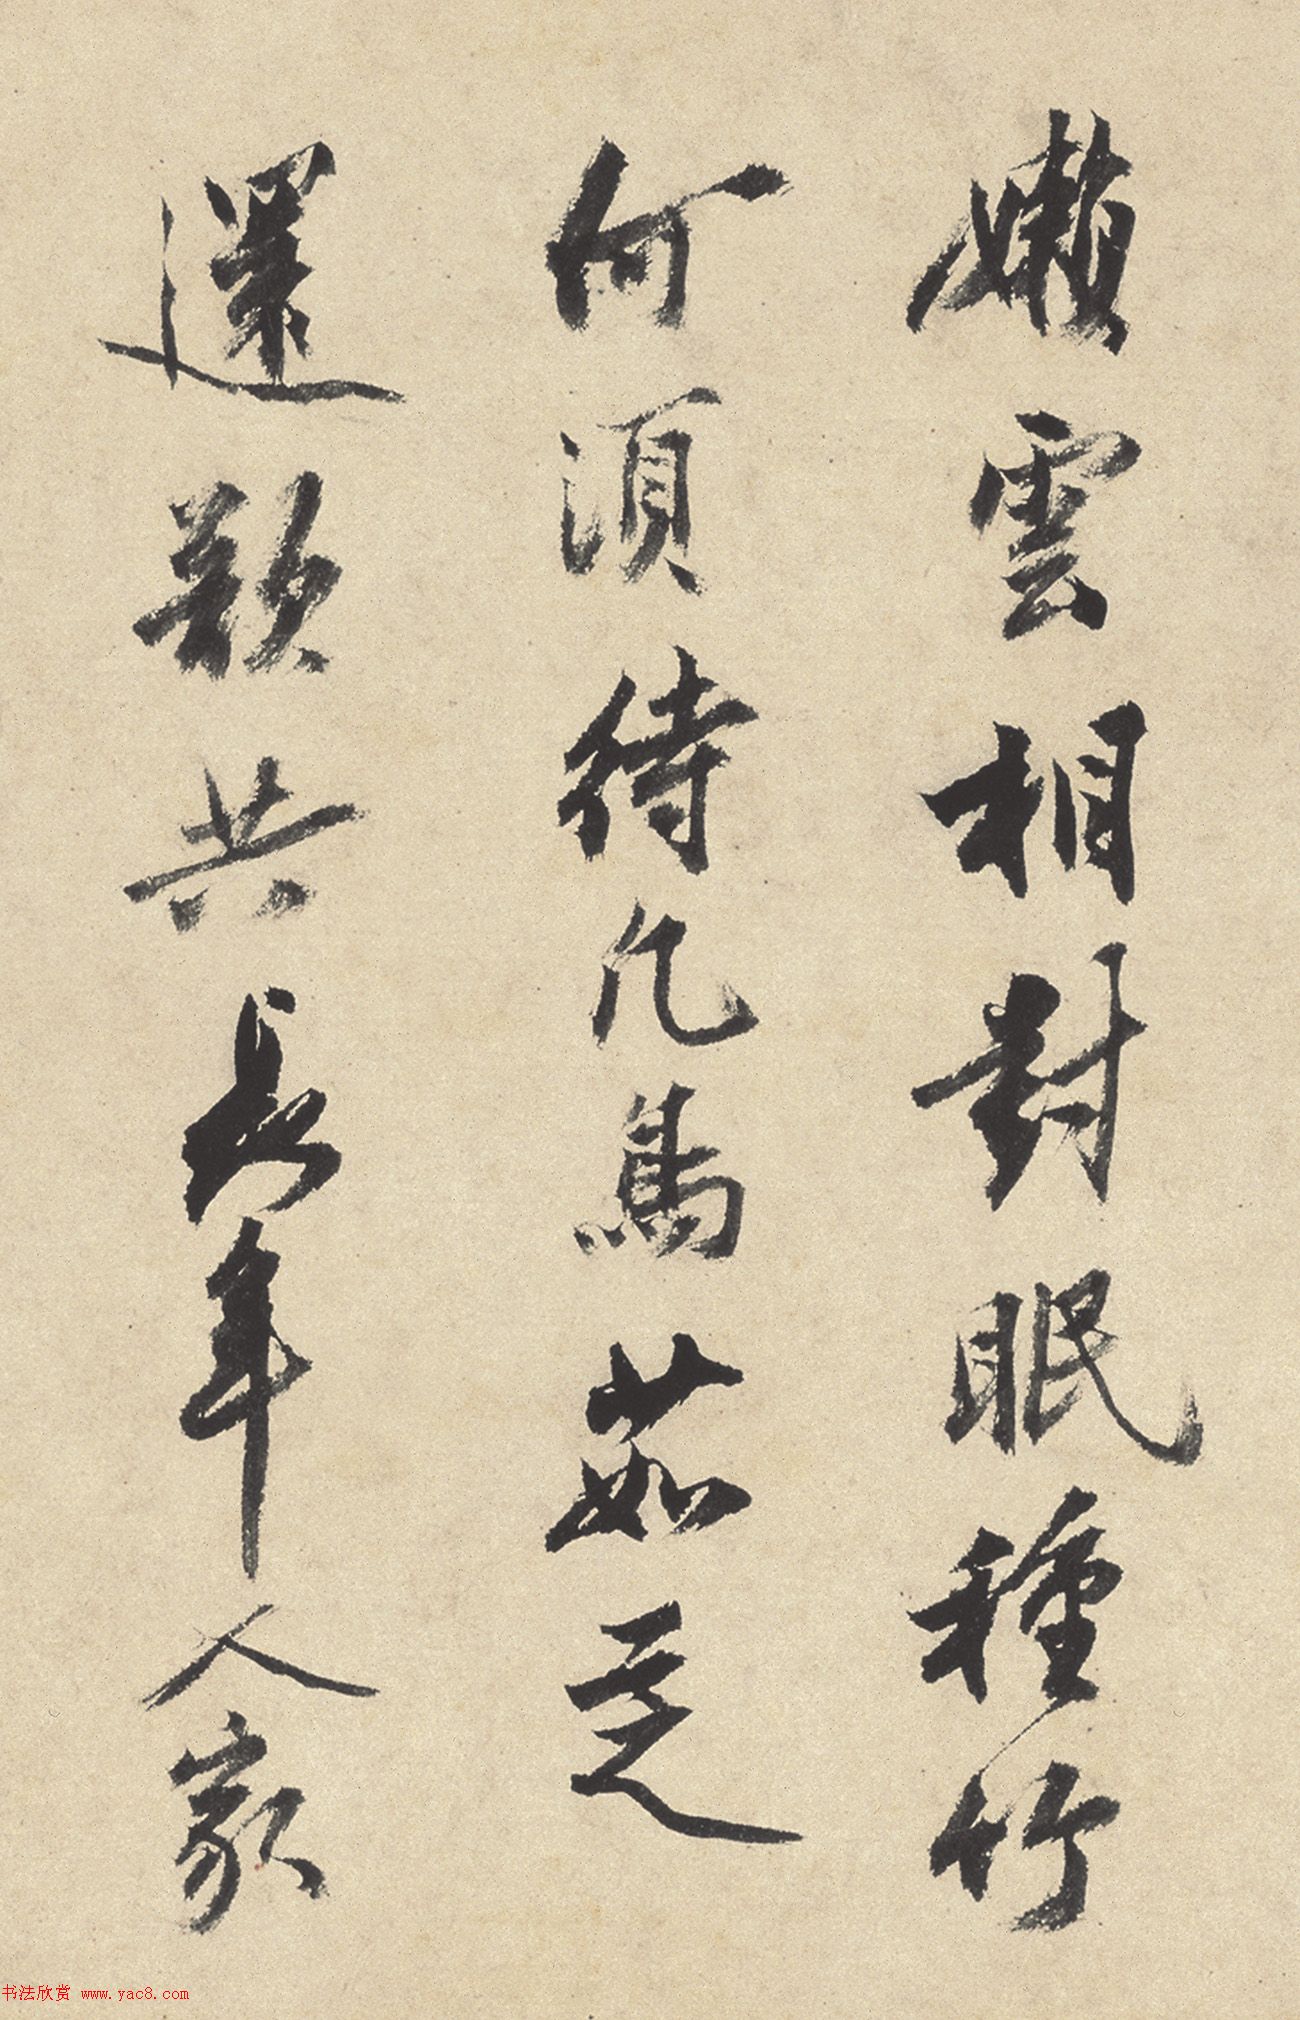 嬾雲相對眠種竹
何須待凡馬茹芝
還欵共長年人家
书法欣赏 www.yac8.com